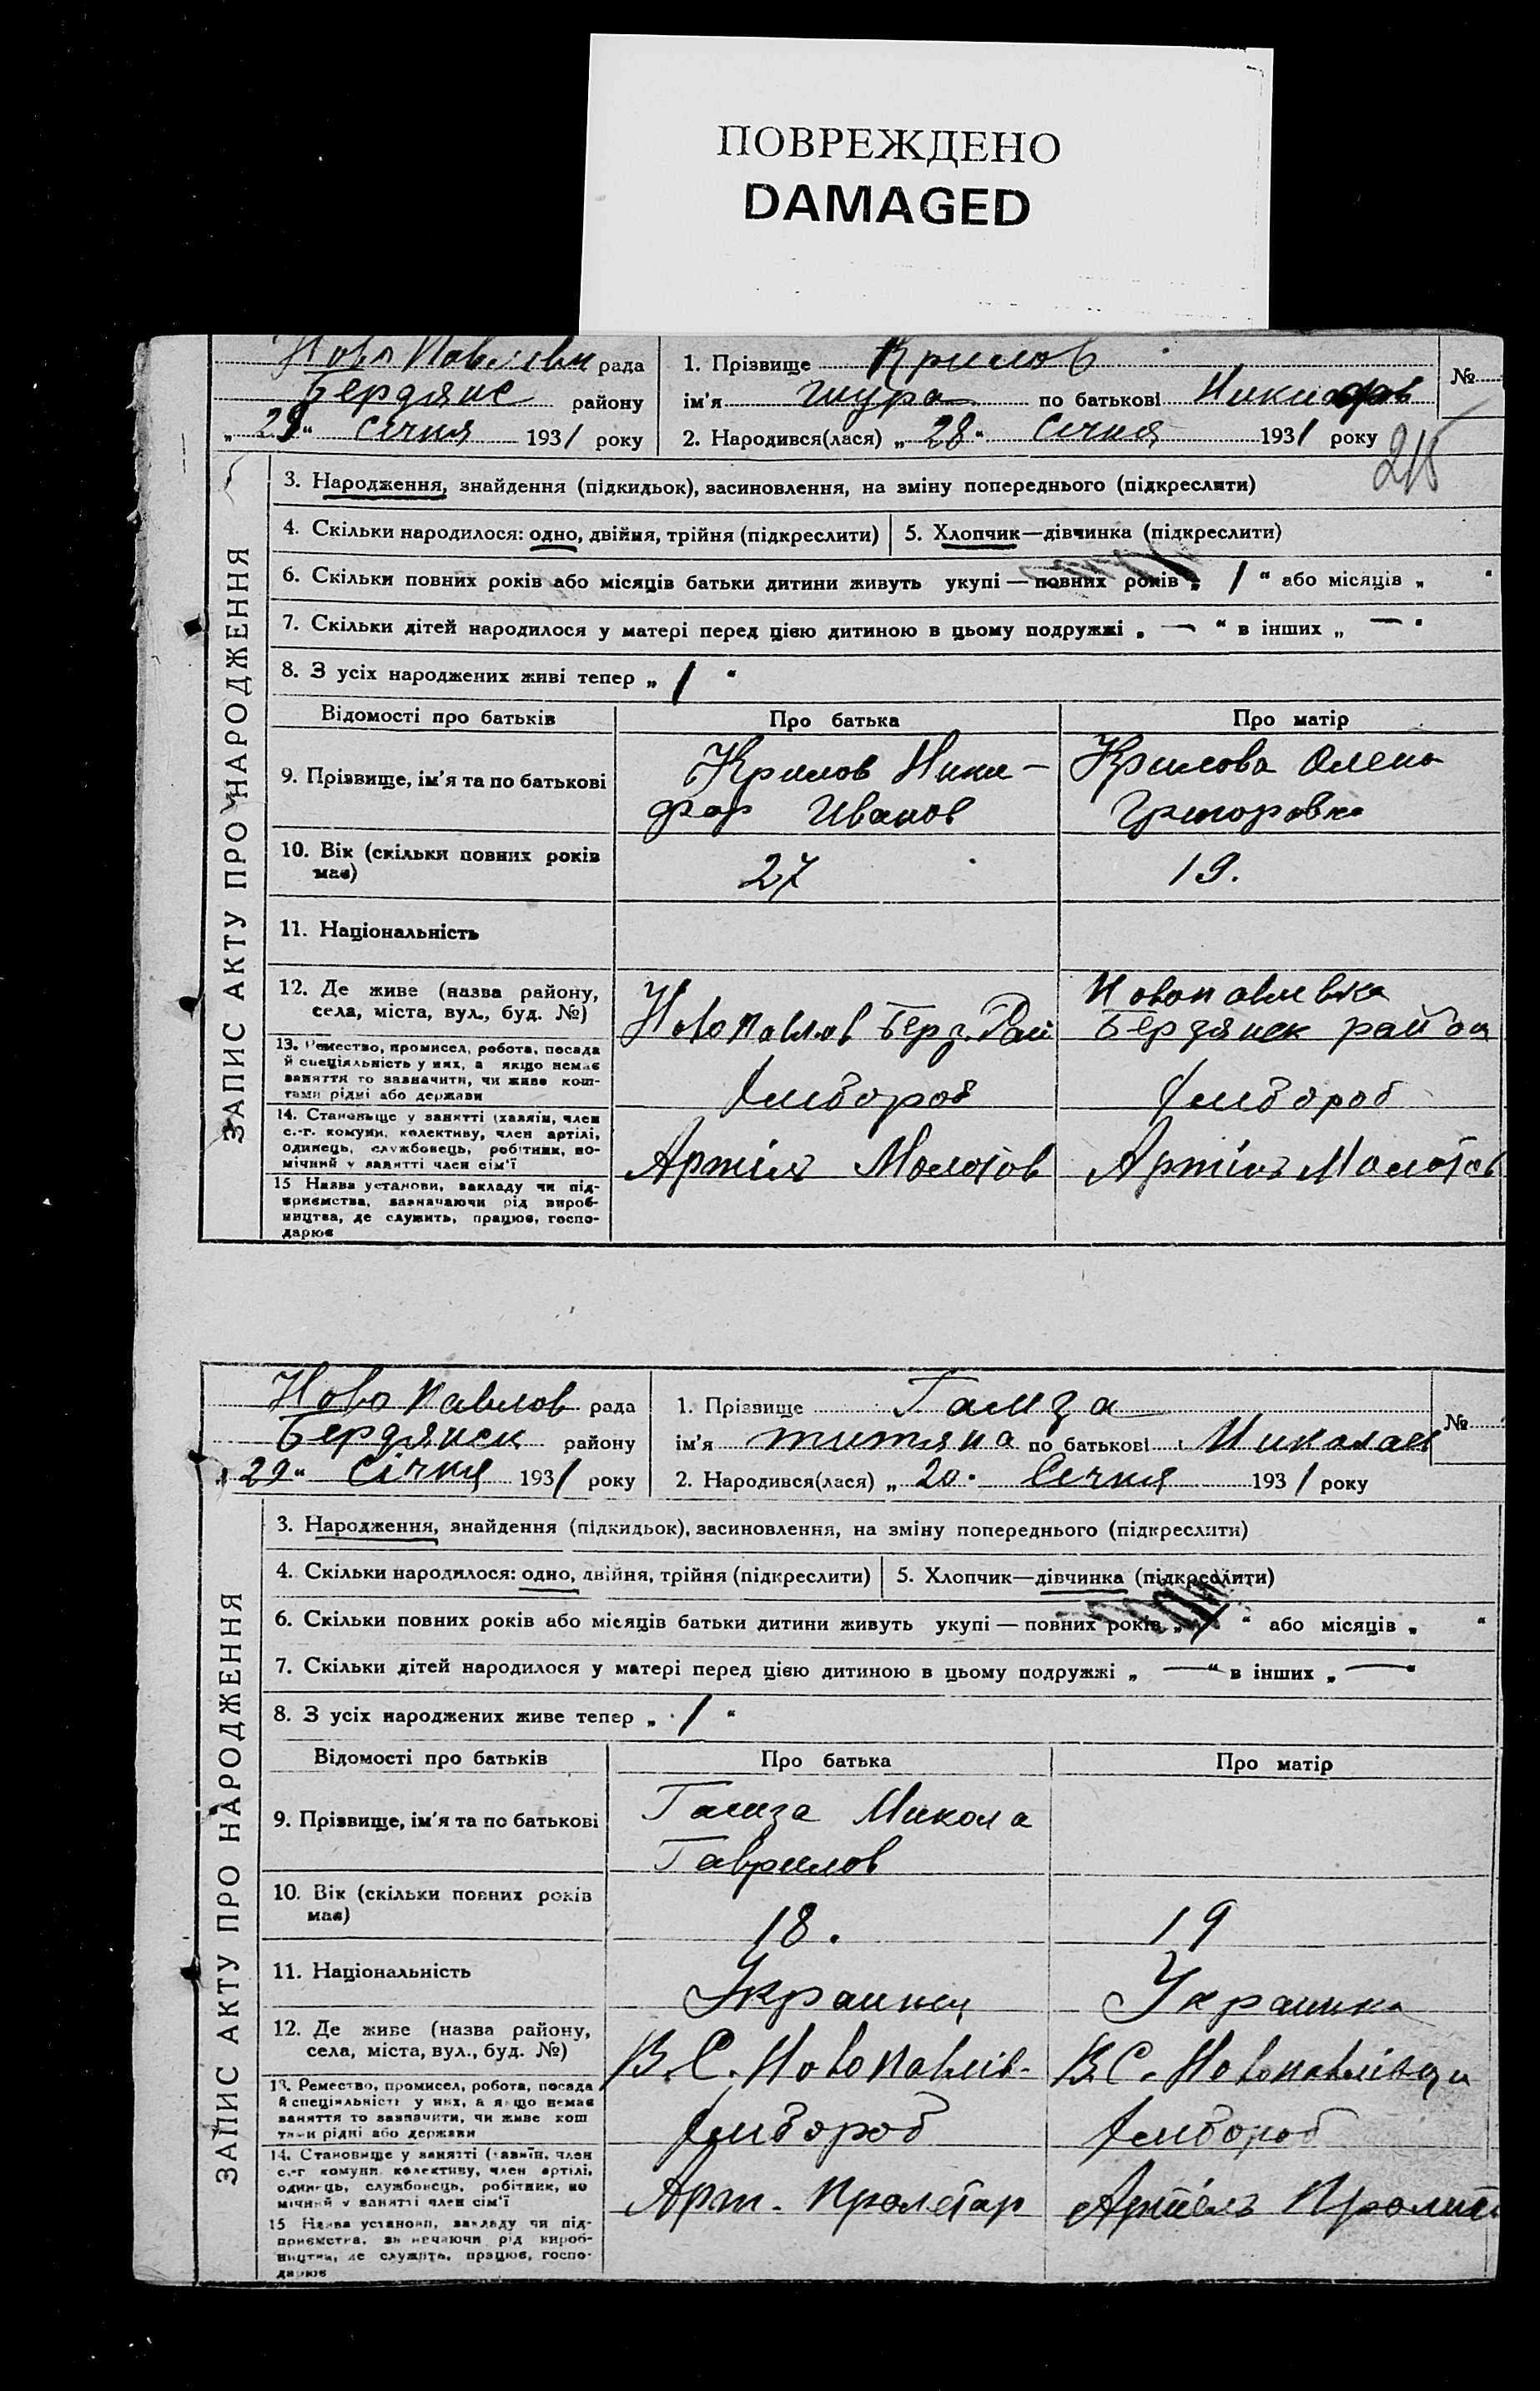 ПОВРЕЖДЕНО
DAMAGED
Ново Павлівки рада
Бердянс району
„29“ Січня 1931 року
1. Прізвище Крилов
ім'я Шура по батькові Никифоров
2. Народився(лася) „28“ Січня 1931 року
№
215
ЗАПИС АКТУ ПРО НАРОДЖЕННЯ
3. Народження, знайдення (підкидьок), засиновлення, на зміну попереднього (підкреслити)
4. Скільки народилося: одно, двійня, трійня (підкреслити) 5. Хлопчик—дівчинка (підкреслити)
6. Скільки повних років або місяців батьки дитини живуть укупі — повних років „ 1 “ або місяців „ “
7. Скільки дітей народилося у матері перед цією дитиною в цьому подружжі „ — “ в інших „ — “
8. З усіх народжених живі тепер „ 1 “
Відомості про батьків Про батька Про матір
9. Прізвище, ім'я та по батькові
Крилов Ники-
фор Иванов
Крилова Олена
Григоровка
10. Вік (скільки повних років
має)
27
19.
11. Національність
12. Де живе (назва району,
села, міста, вул., буд. №)
Новопавлов Берд. Рай
Новопавлевка
Бердянск район
13. Ремество, промисел, робота, посада
й спеціяльність у них, а якщо немає
заняття то зазначити, чи живе кош-
тами рідні або держави
Хлібороб
Хлібороб
14. Становище у занятті (хазяїн, член
с.-г. комуни, колективу, член артілі,
одинець, службовець, робітник, по-
мічний у занятті член сім'ї
Артіль Молотов
Артіль Молотов
15 Назва установи, закладу чи під-
приємства, зазначаючи рід вироб-
ництва, де служить, працює, госпо-
дарює
Ново Павлов рада
Бердянск району
„29“ Січня 1931 року
1. Прізвище Гамза
ім'я титяна по батькові Николаев
2. Народився(лася) „20“ Січня 1931 року
№
ЗАПИС АКТУ ПРО НАРОДЖЕННЯ
3. Народження, знайдення (підкидьок), засиновлення, на зміну попереднього (підкреслити)
4. Скільки народилося: одно, двійня, трійня (підкреслити) 5. Хлопчик—дівчинка (підкреслити)
6. Скільки повних років або місяців батьки дитини живуть укупі — повних років „ 1 “ або місяців „ “
7. Скільки дітей народилося у матері перед цією дитиною в цьому подружжі „ — “ в інших „ — “
8. З усіх народжених живе тепер „ 1 “
Відомості про батьків Про батька Про матір
9. Прізвище, ім'я та по батькові
Гамза Микола
Гаврилов
10. Вік (скільки повних років
має)
18.
19
11. Національність
Украинец
Украинка
12. Де живе (назва району,
села, міста, вул., буд. №)
В. С. Новопавлів-
В. С. Новопавлівци
13. Ремество, промисел, робота, посада
й спеціяльність у них, а якщо немає
заняття то зазначити, чи живе кош
тами рідні або держави
Хлібороб
Хлібороб
14. Становище у занятті (хазяїн, член
с.-г. комуни, колективу, член артілі,
одинець, службовець, робітник, по
мічний у занятті член сім'ї
Арт. Пролетар
Артіль Пролит
15 Назва установи, закладу чи під-
приємства, зазначаючи рід вироб-
ництва, де служить, працює, госпо-
дарює